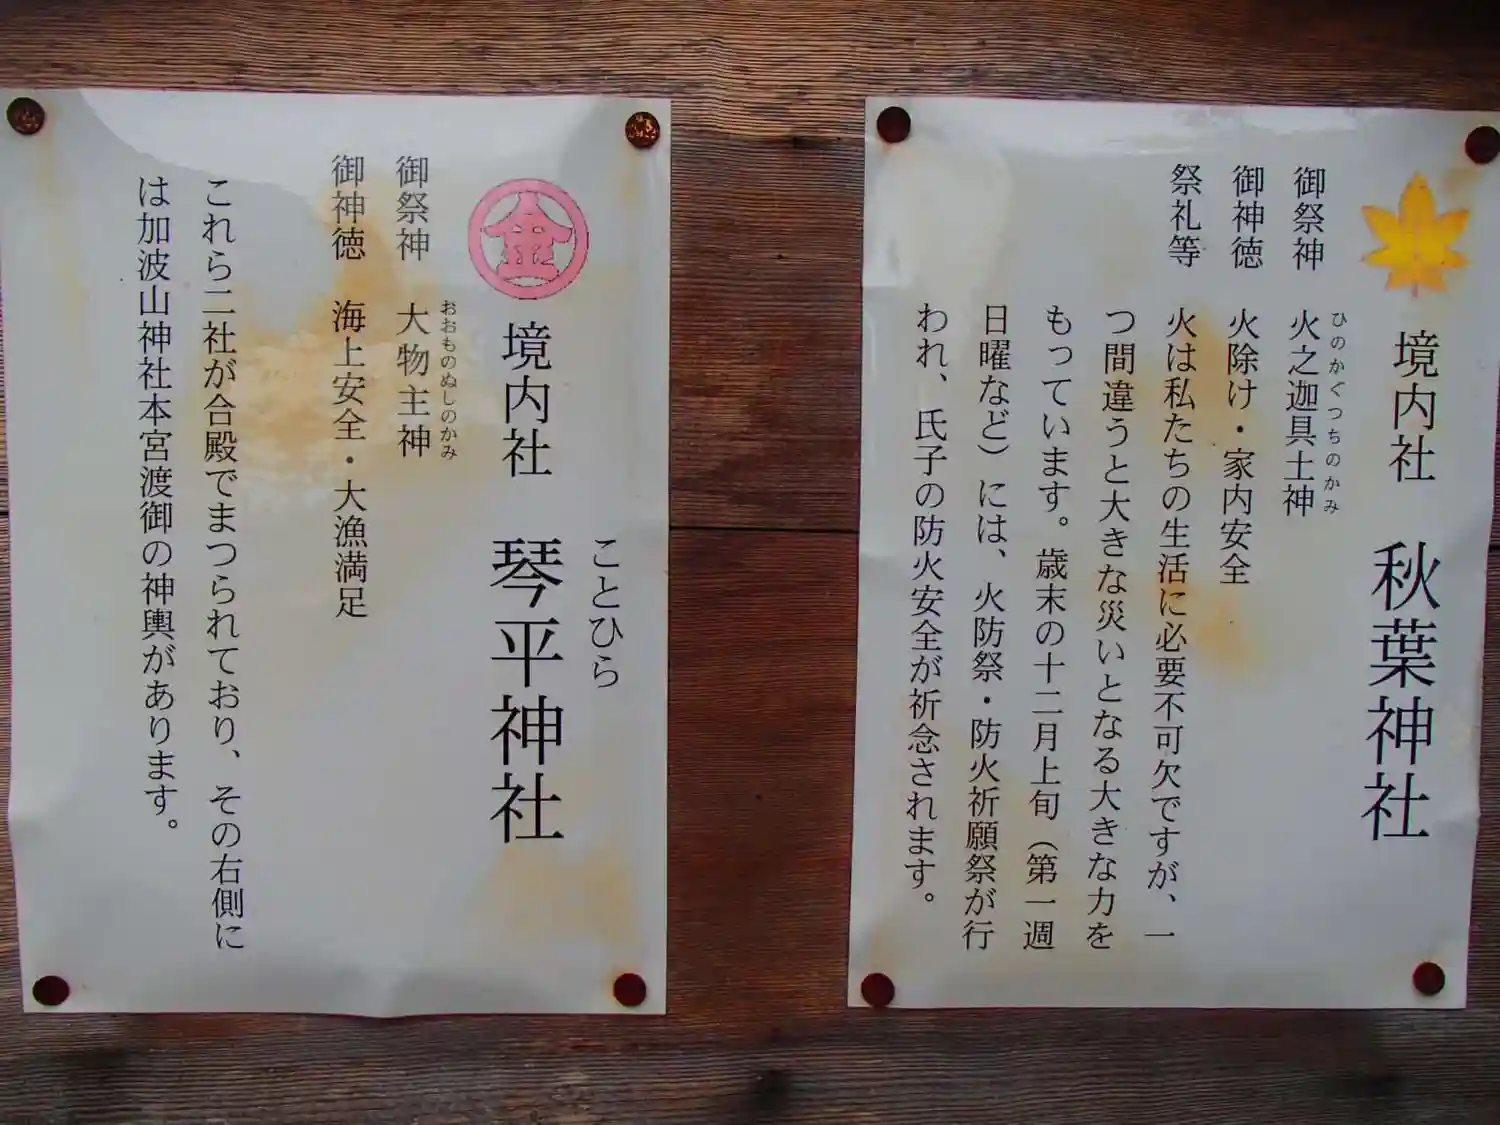 境内社 秋葉神社
ひのかぐつちのかみ
御祭神 火之迦具土神
御神徳 火除け・家内安全
祭礼等 火は私たちの生活に必要不可欠ですが、一
つ間違うと大きな災いとなる大きな力を
もっています。歳末の十二月上旬（第一週
日曜など）には、火防祭・防火祈願祭が行
われ、氏子の防火安全が祈念されます。
ことひら
金 境内社 琴平神社
おおものぬしのかみ
御祭神 大物主神
御神徳 海上安全・大漁満足
これら二社が合殿でまつられており、その右側に
は加波山神社本宮渡御の神輿があります。